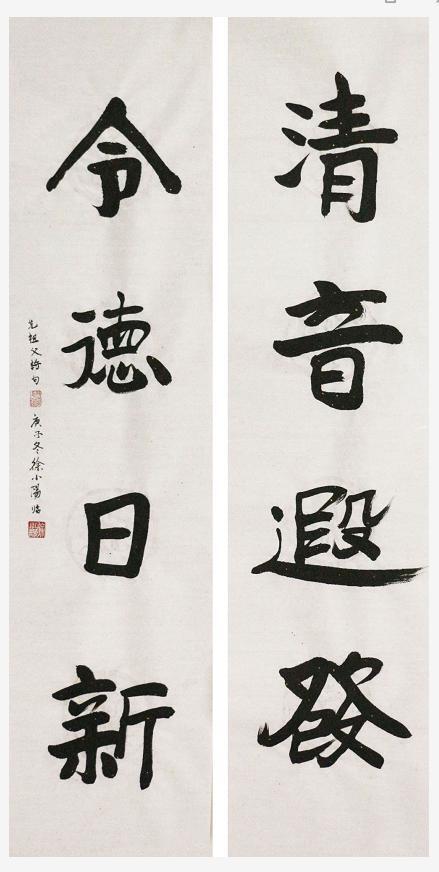 清音遐發
令德日新
先祖父詩句
庚子冬徐小陽臨